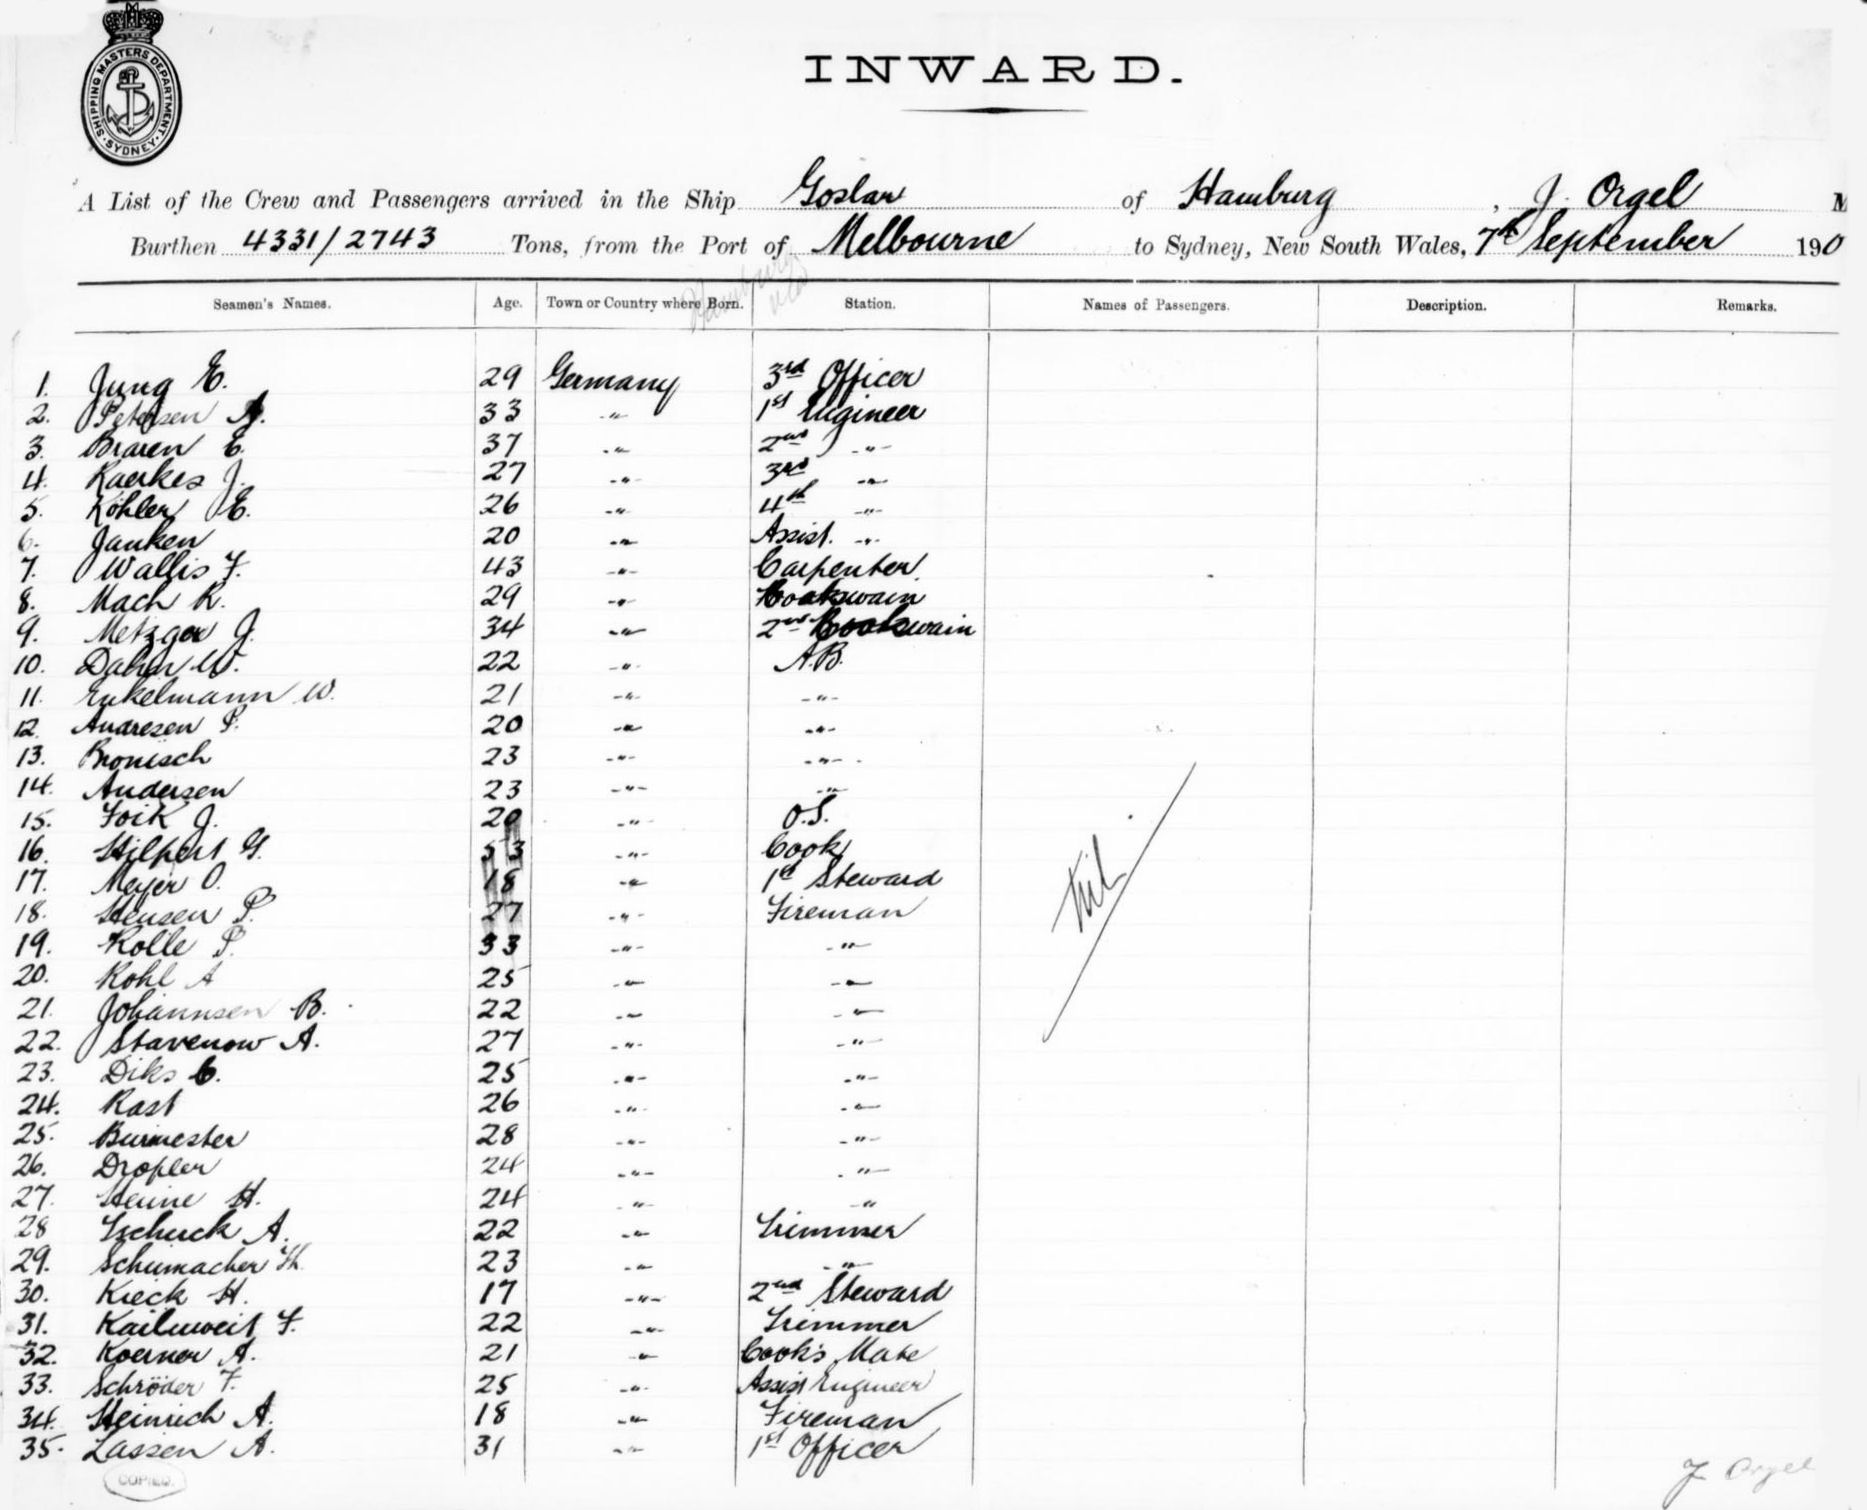 SHIPPING MASTERS DEPARTMENT. SYDNEY
INWARD.
A List of the Crew and Passengers arrived in the Ship Goslar of Hamburg, J. Orgel M
Burthen 4331/2743 Tons, from the Port of Melbourne to Sydney, New South Wales, 7th September 190
Seamen's Names. Age. Town or Country where Born. Station. Names of Passengers. Description. Remarks.
1. Jung E. 29 Germany 3rd Officer
2. Petersen 33 -"- 1st Engineer
3. Braren E. 37 -"- 2nd -"-
4. Kaerkes J. 27 -"- 3rd -"-
5. Köhler E. 26 -"- 4th -"-
6. Janken 20 -"- Assist. -"-
7. Wallis F. 43 -"- Carpenter
8. Mach R. 29 -"- Boatswain
9. Metzger J. 34 -"- 2nd Boatswain
10. Dahn W. 22 -"- A.B.
11. Enkelmann W. 21 -"- -"-
12. Andresen P. 20 -"- -"-
13. Bronisch 23 -"- -"-
14. Andersen 23 -"- -"-
15. Foik J. 20 -"- O.S.
16. Hilpert G. 53 -"- Cook
17. Meyer O. 18 -"- 1st Steward
18. Hensen P. 27 -"- Fireman
19. Kolle P. 33 -"- -"-
20. Kohl A 25 -"- -"-
21. Johannsen B. 22 -"- -"-
22. Stavenow A. 27 -"- -"-
23. Diks C. 25 -"- -"-
24. Rast 26 -"- -"-
25. Burmester 28 -"- -"-
26. Dropler 24 -"- -"-
27. Heine H. 24 -"- -"-
28 Tschuck A. 22 -"- Trimmer
29. Schumacher Th. 23 -"- -"-
30. Kieck H. 17 -"- 2nd Steward
31. Kailuweit F. 22 -"- Trimmer
32. Koerner A. 21 -"- Cook's Mate
33. Schröder F. 25 -"- Assist Engineer
34. Heinrich A. 18 -"- Fireman
35. Lassen A. 31 -"- 1st Officer
Nil
J Orgel
COPIED.